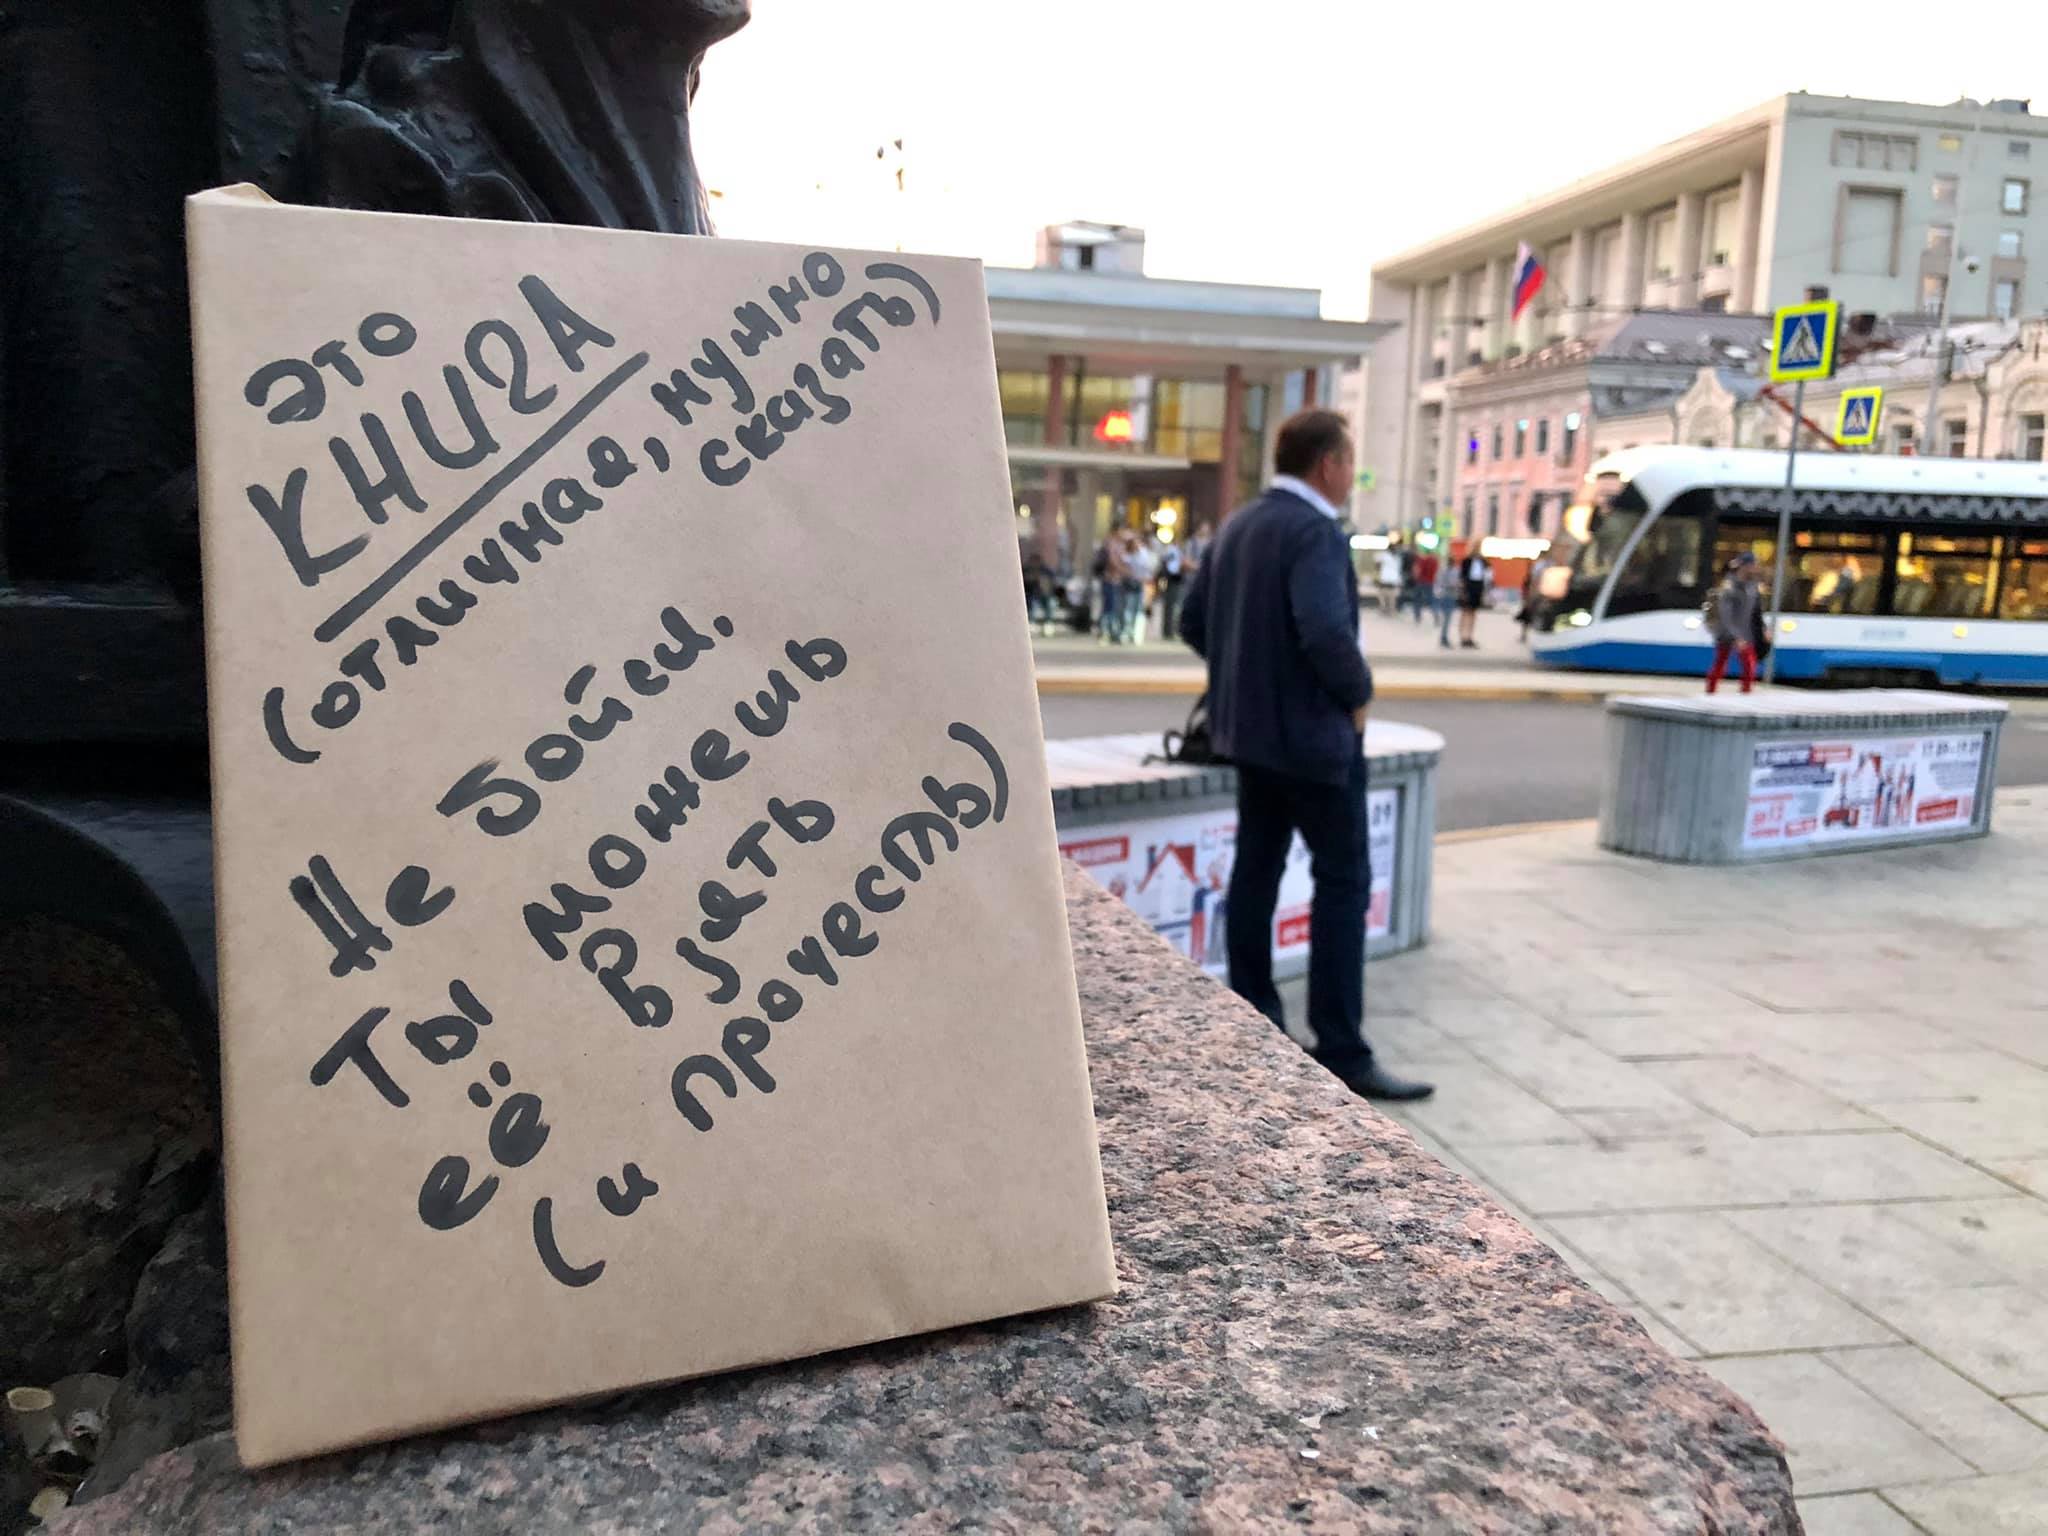 это
КНИГА
(отличная, нужно
сказать)
Не бойся.
Ты можешь
её взять
(и прочесть)